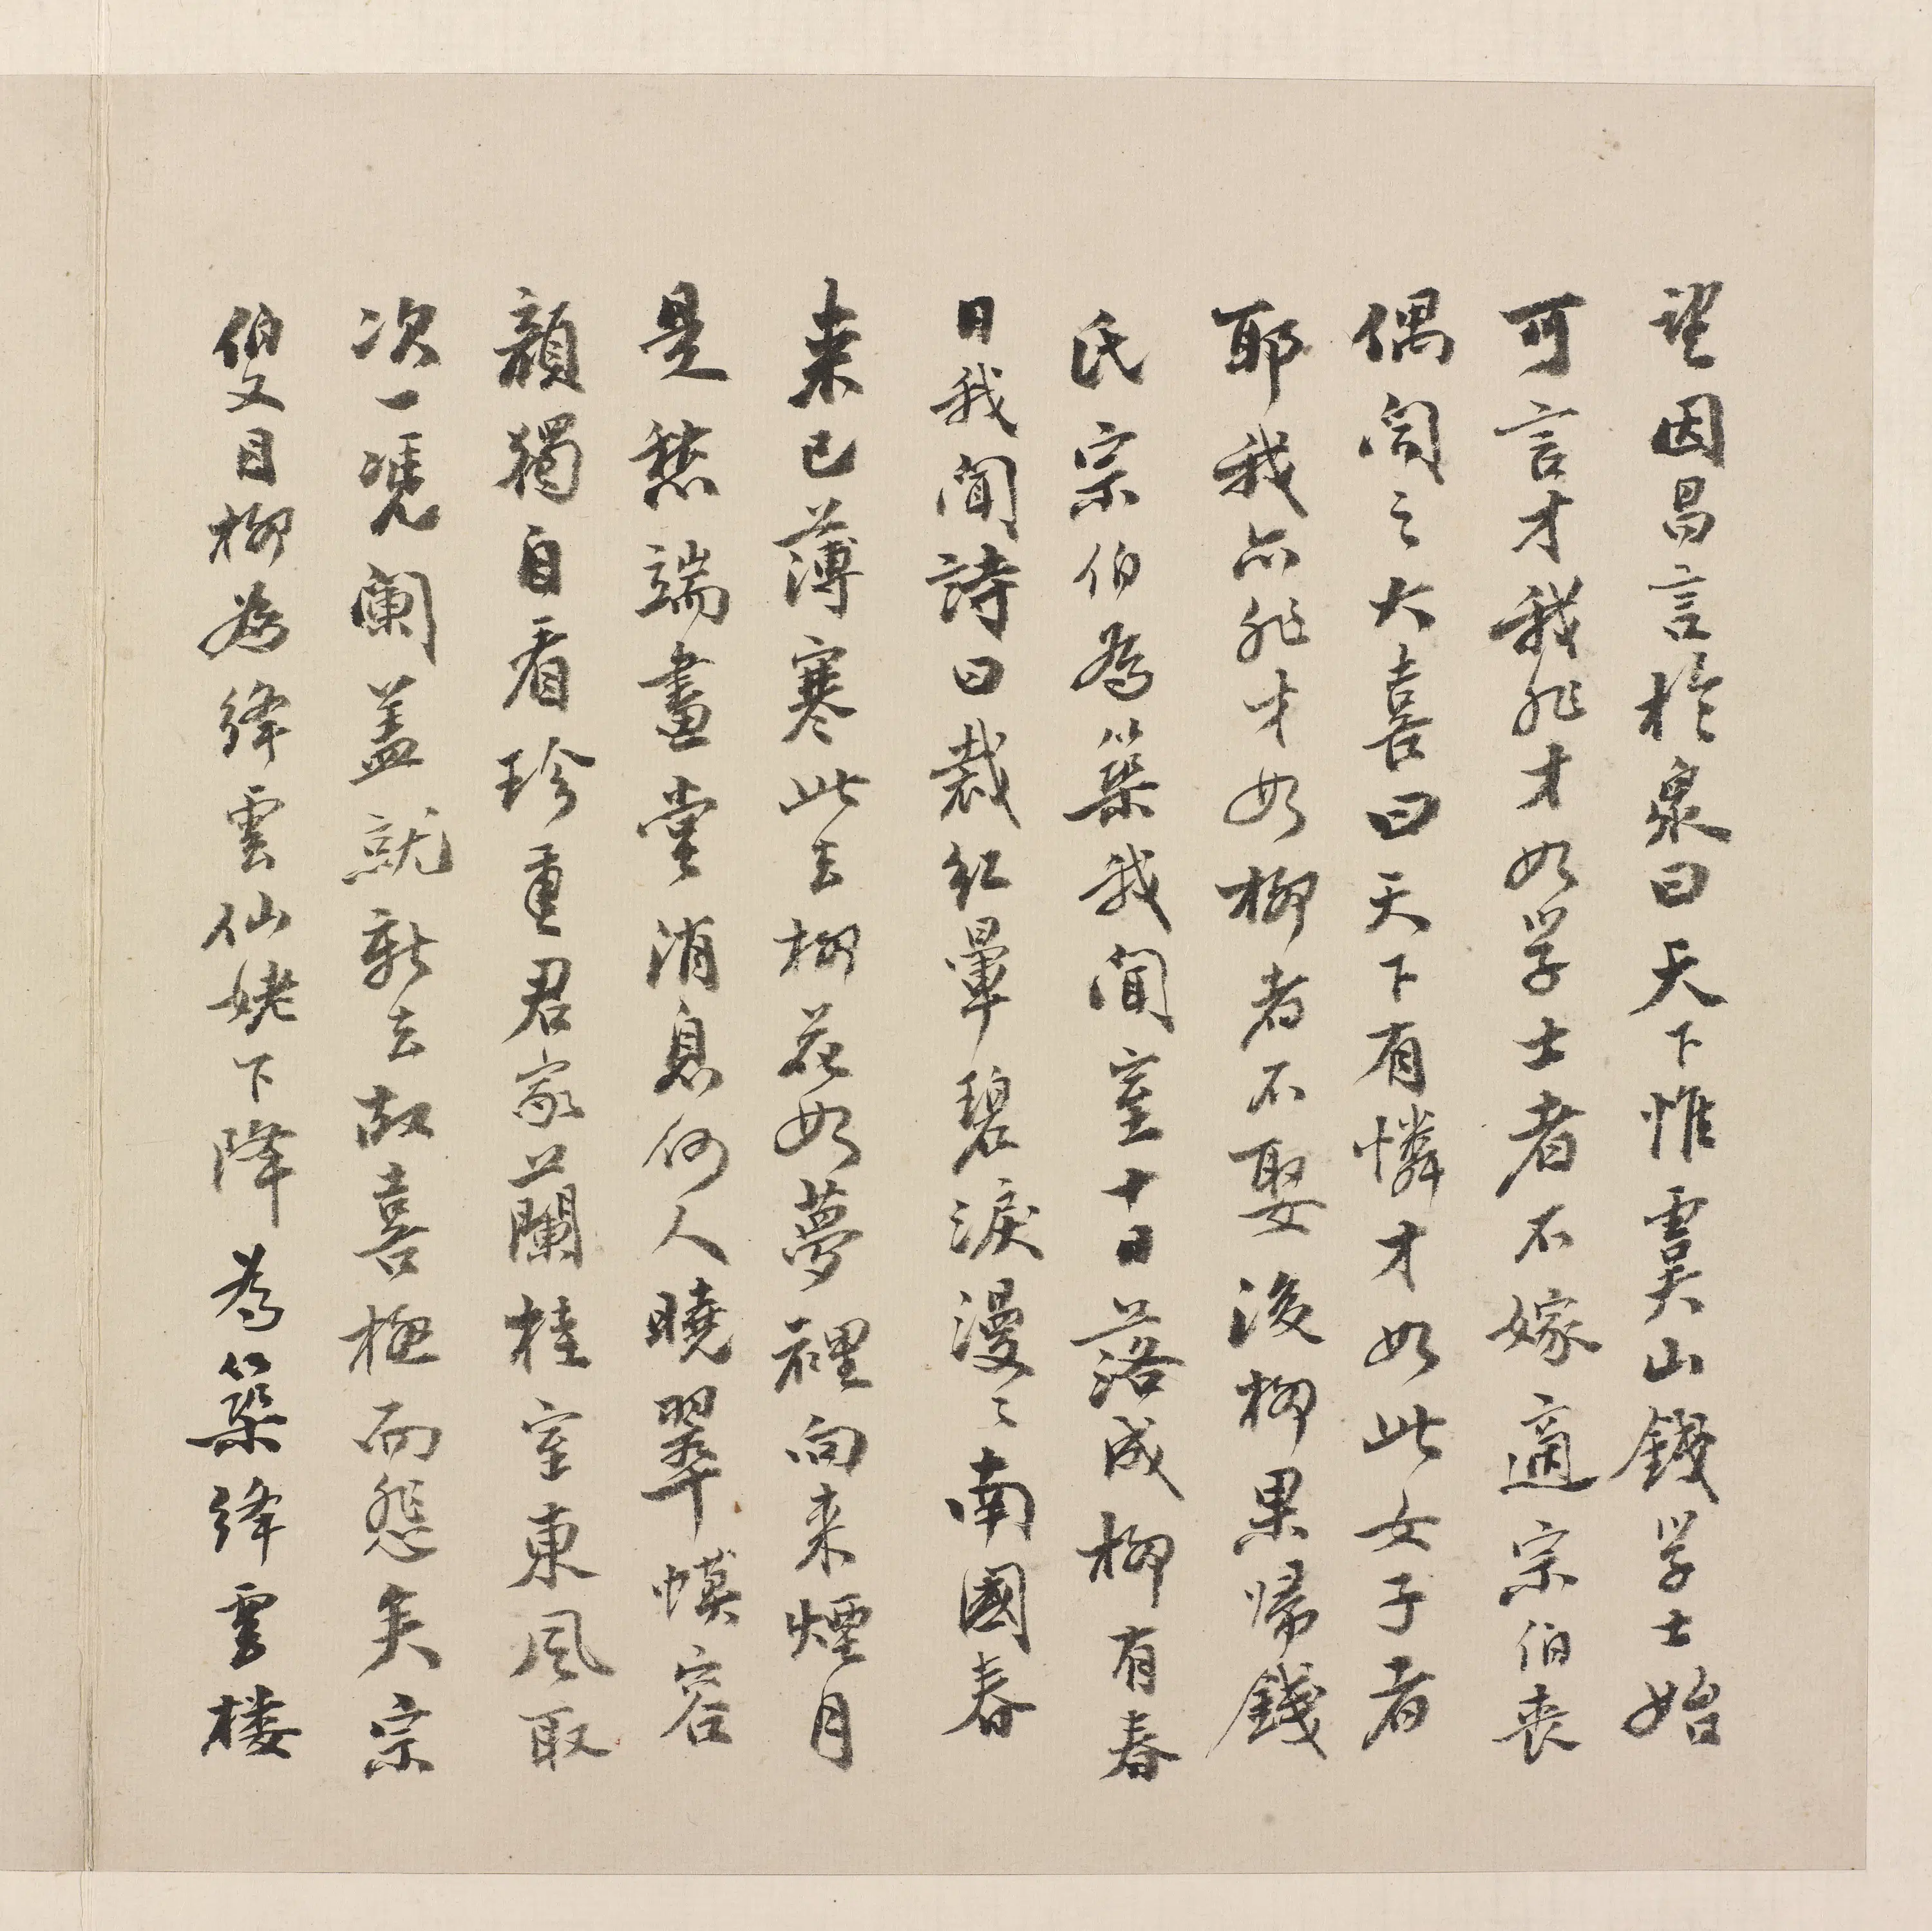 望因昌言於眾曰天下惟虞山錢学士始
可言才我非才如学士者不嫁適宗伯丧
偶闻之大喜曰天下有憐才如此女子者
耶我亦非才如柳者不娶後柳果歸錢
氏宗伯為築我闻室十日落成柳有春
日我闻詩曰裁红暈碧淚漫〻南國春
来已薄寒此去柳花如夢裡向来煙月
是愁端畫堂消息何人曉翠幙容
顏獨自看珍重君家蘭桂室東風取
次一凴闌盖就新去故喜極而怨矣宗
伯又目柳為绛雲仙姥下降為築绛雲楼